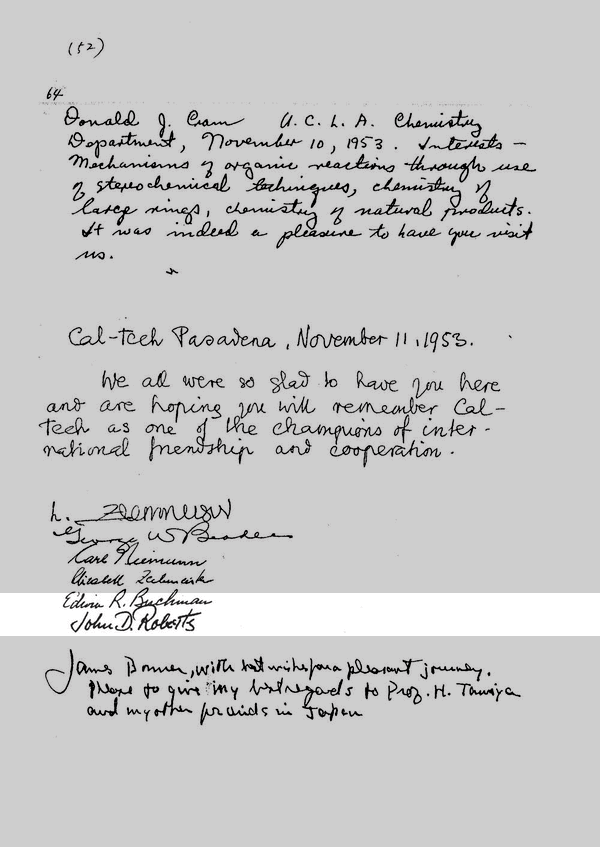 (52)
64
Donald J. Cram U.C.L.A. Chemistry
Department, November 10, 1953. Interests —
Mechanisms of organic reactions through use
of stereochemical techniques, chemistry of
large rings, chemistry of natural products.
It was indeed a pleasure to have you visit
us.
Cal-tech Pasadena, November 11, 1953.
We all were so glad to have you here
and are hoping you will remember Cal-
tech as one of the champions of inter-
national friendship and cooperation.
L. Zechmeister
George W. Beadle
Carl Niemann
Elizabeth Zechmeister
Edwin R. Buchman
John D. Roberts
James Bonner, with best wishes for a pleasant journey.
Please to give my best regards to Prof. H. Tamiya
and my other friends in Japan